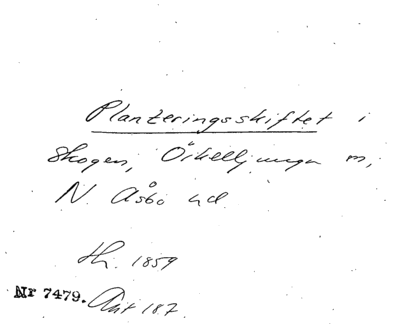 Planteringsskiftet i
Skogen, Örkelljunga m,
N. Åsbo hd
Sk. 1859
Nr 7479. Ant 187.